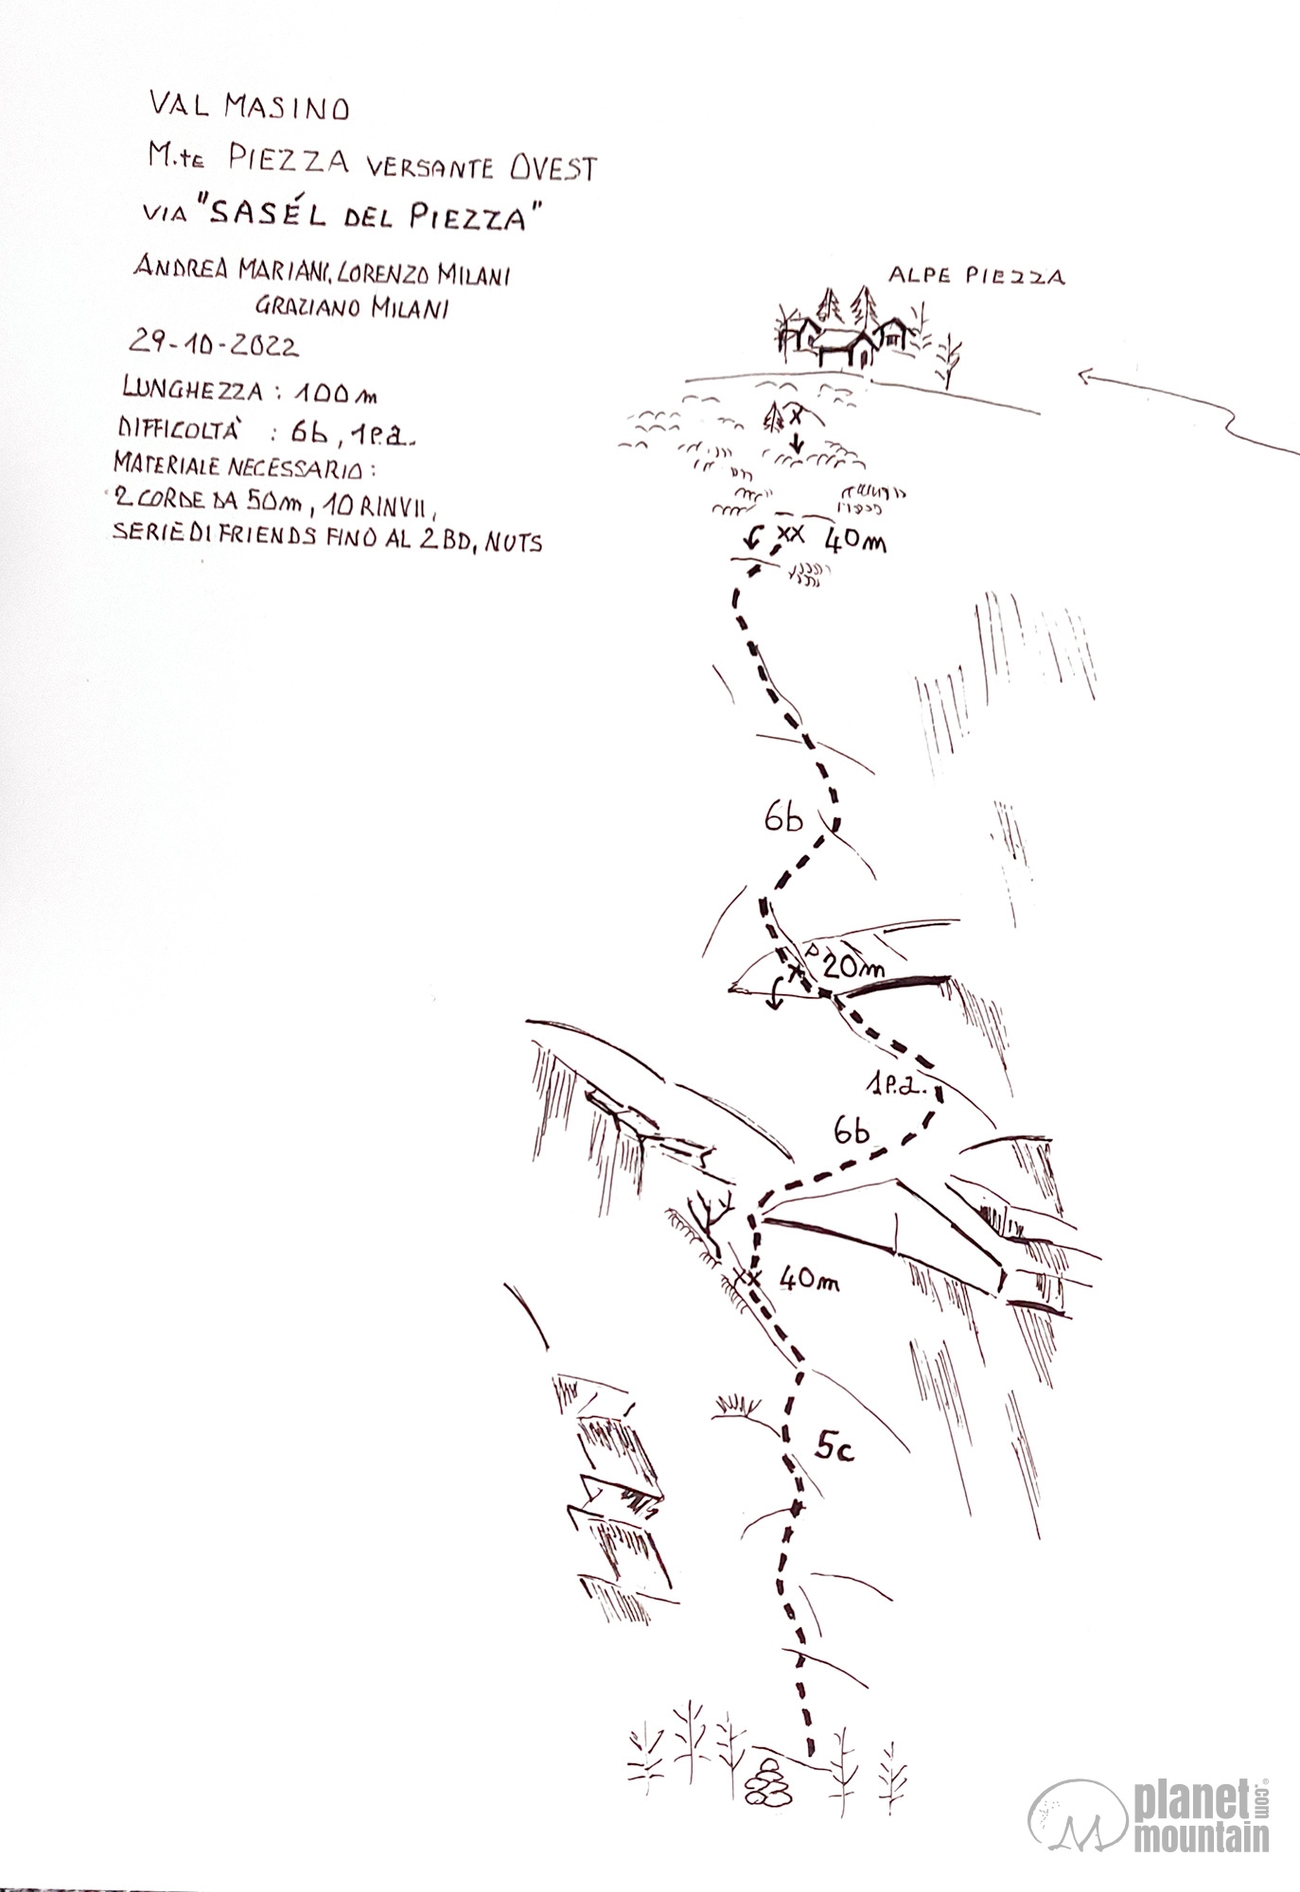 VAL MASINO
M.te PIEZZA VERSANTE OVEST
VIA "SASÉL DEL PIEZZA"
ANDREA MARIANI, LORENZO MILANI
GRAZIANO MILANI
29-10-2022
LUNGHEZZA : 100 m
DIFFICOLTÀ : 6b, 1P.a.
MATERIALE NECESSARIO :
2 CORDE DA 50m, 10 RINVII,
SERIE DI FRIENDS FINO AL 2 BD, NUTS
ALPE PIEZZA
X
XX 40m
6b
P
X 20m
1P.a.
6b
XX 40m
5c
planet
mountain
.com